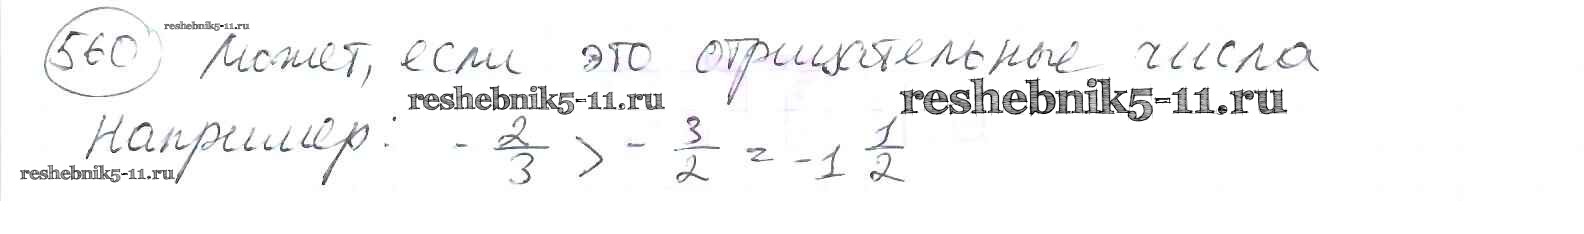 reshebnik5-11.ru
560 Может, если это отрицательные числа
reshebnik5-11.ru reshebnik5-11.ru
Например: - 2/3 > - 3/2 = -1 1/2
reshebnik5-11.ru